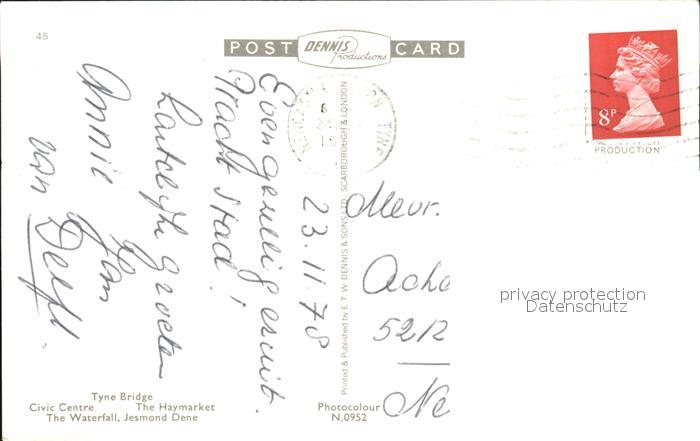 45
POST CARD
DENNIS
Productions
8P
PRODUCTION
NEWCASTLE UPON TYNE
23.11.78
Even gezellig er uit.
Pracht stad!
Hartelijke groeten
Jan
Annie
van Delft.
Printed & Published by E.T.W. DENNIS & SONS LTD. SCARBOROUGH & LONDON
Mevr.
Acho
5212
Ne
privacy protection
Datenschutz
Tyne Bridge
Civic Centre The Haymarket
The Waterfall, Jesmond Dene
Photocolour
N.0952